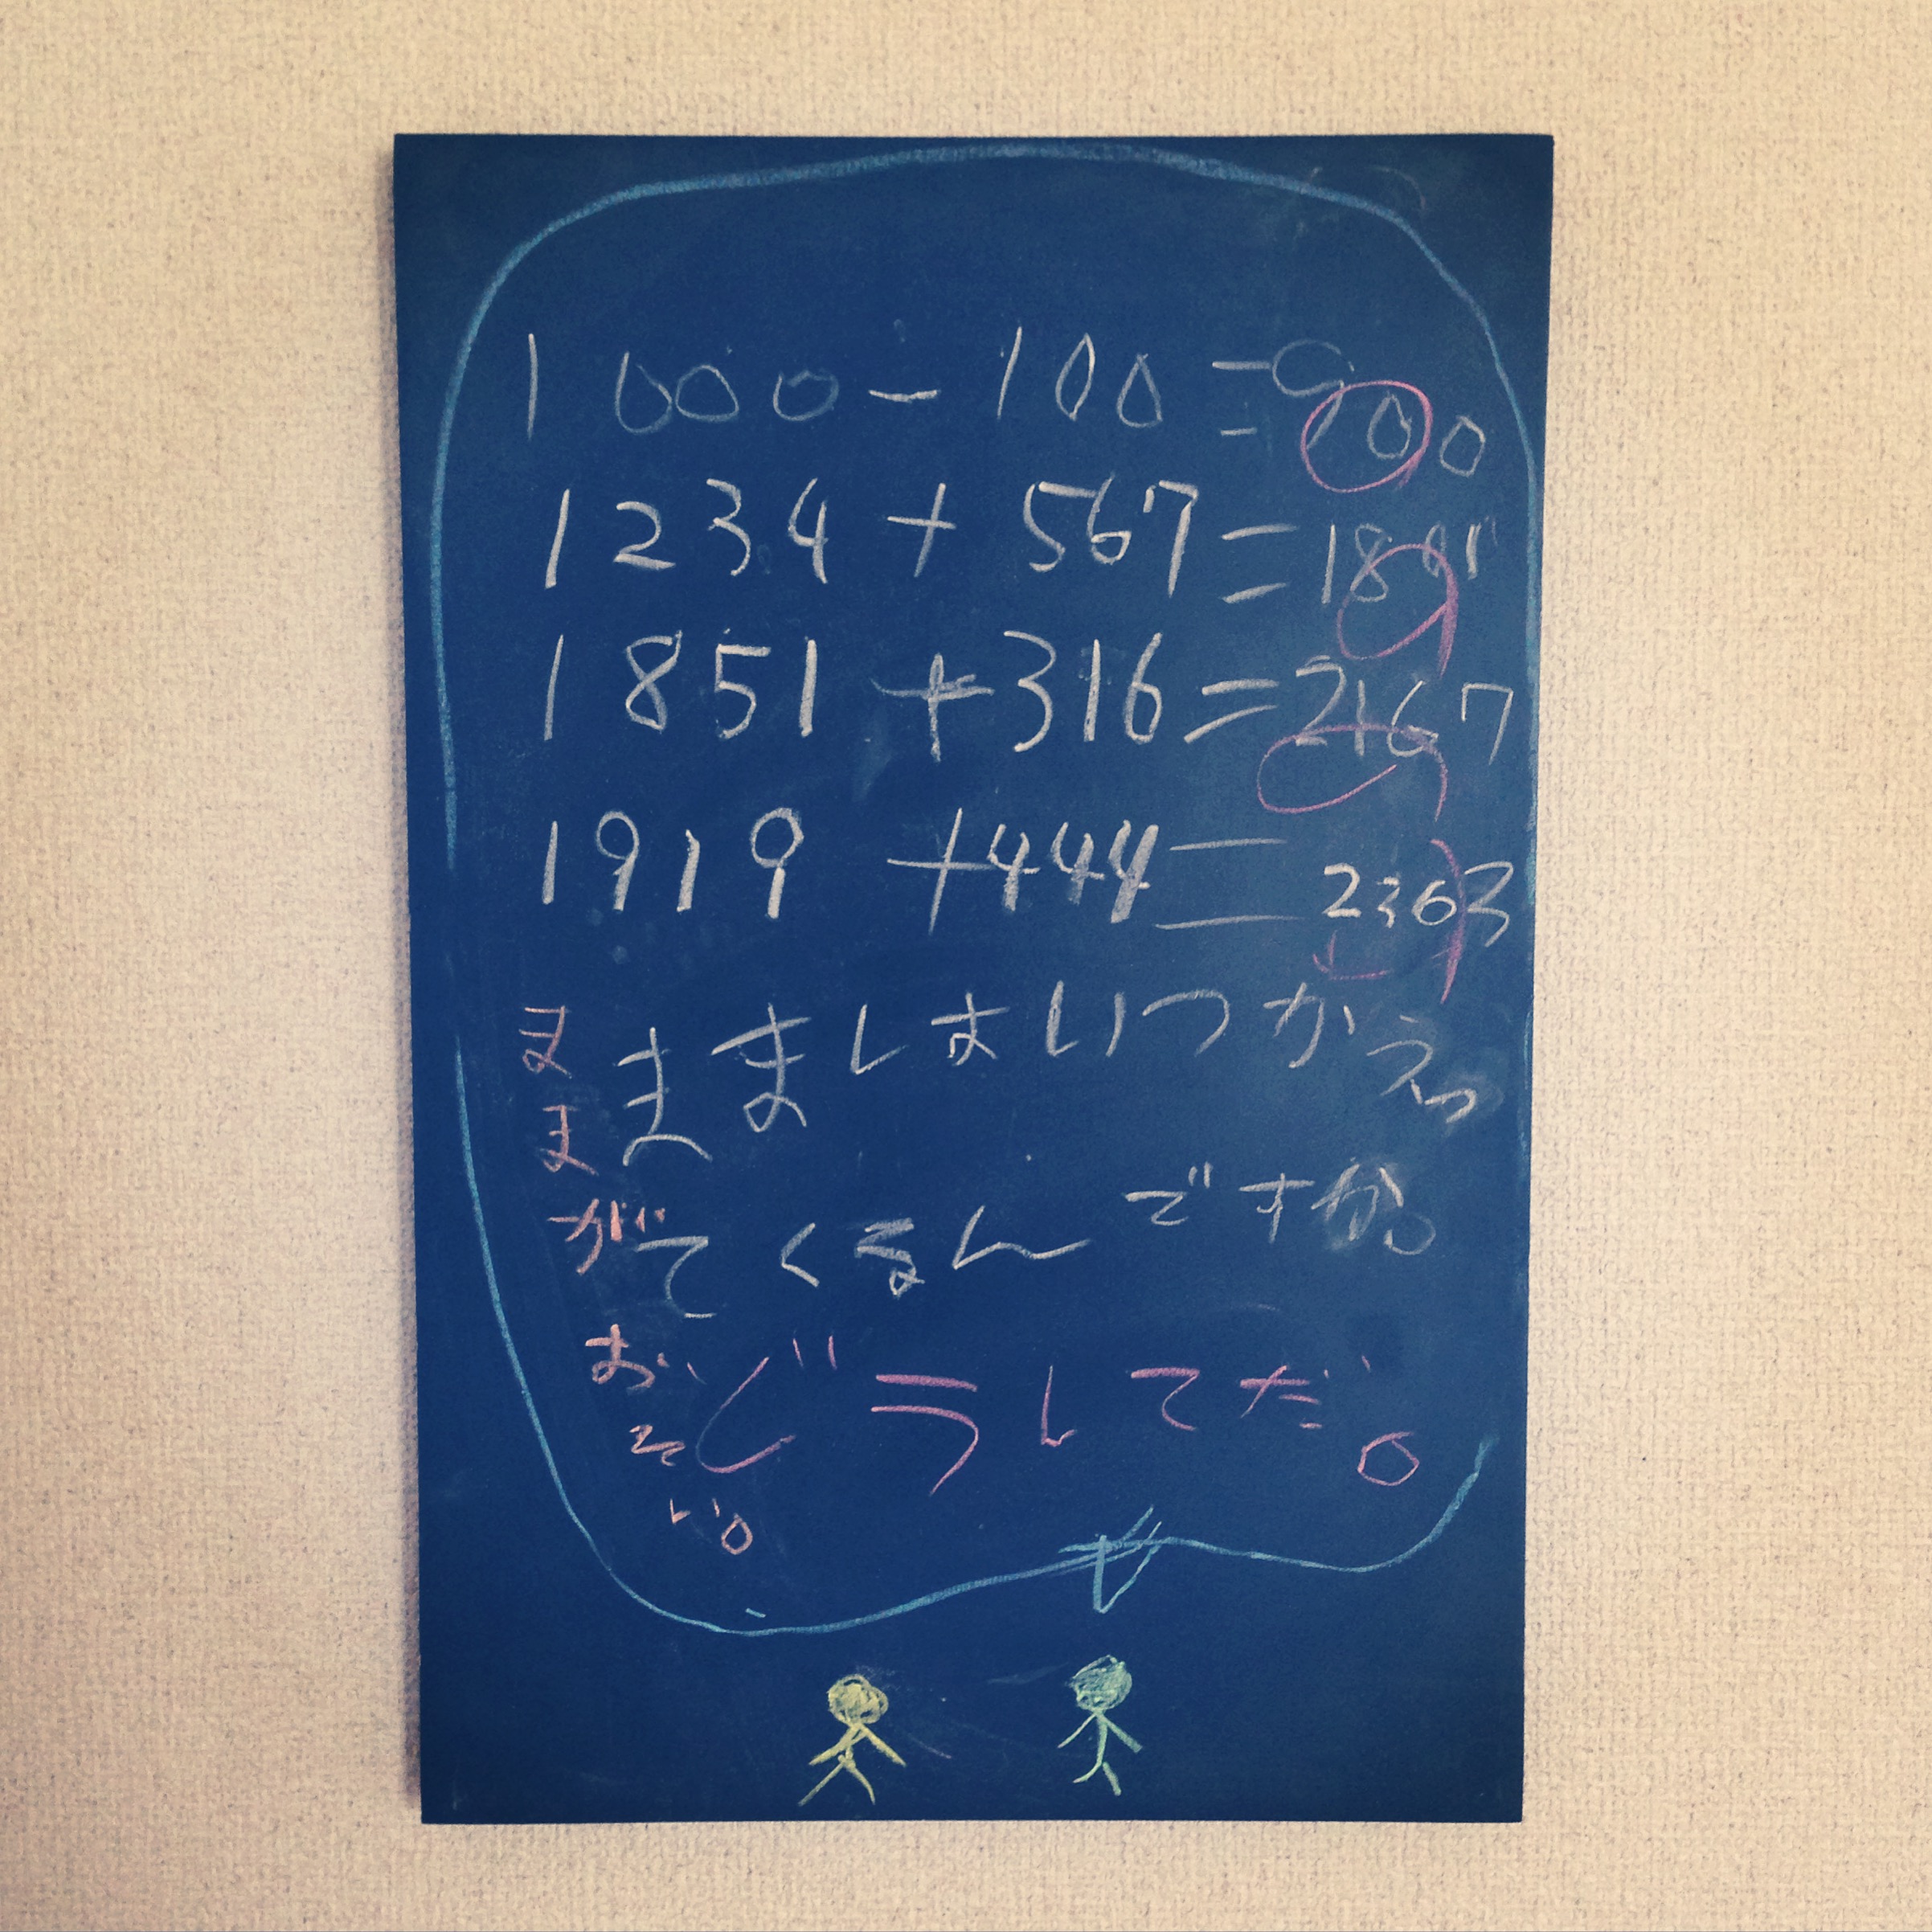 1000-100=900
1234+567=1801
1851+316=2167
1919+444=2363
ままはいつかえっ
てくるんですか。
どうしてだ。
ままがおそい。